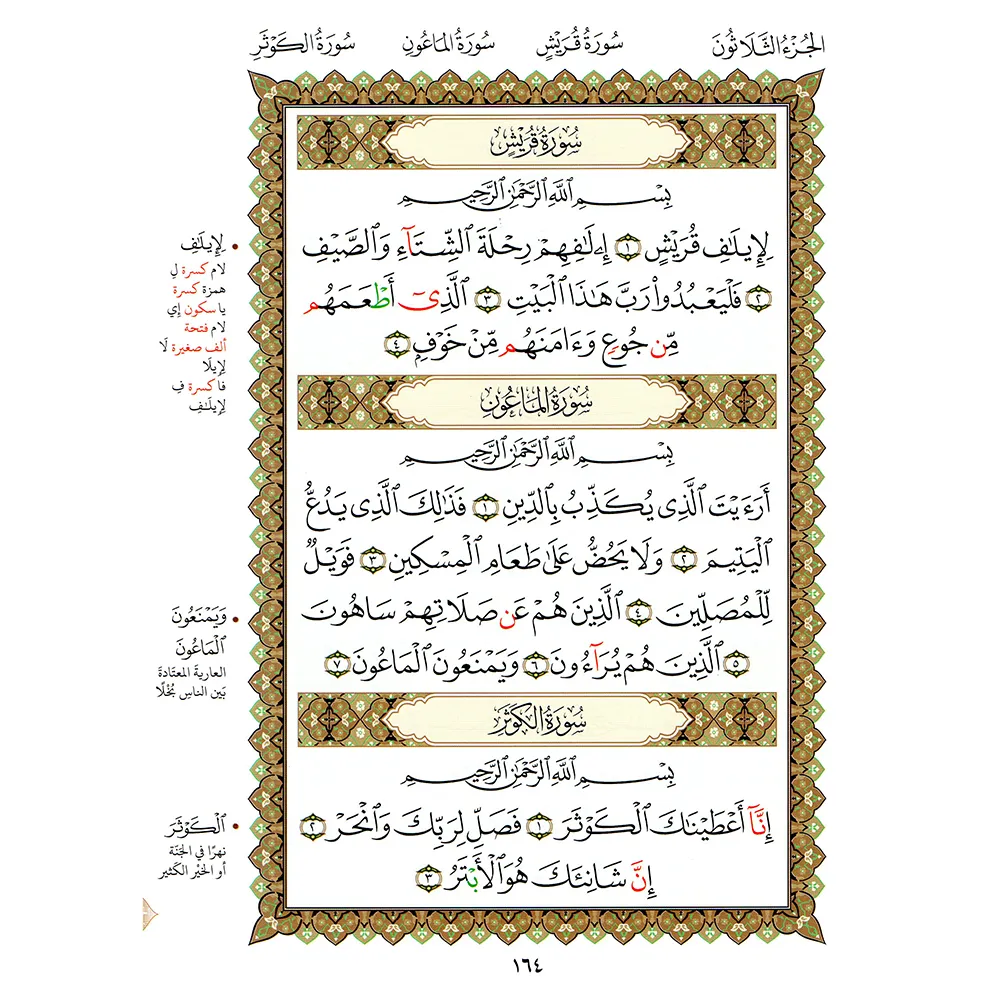 الجُزْءُ الثَّلَاثُونَ سُورَةُ قُرَيْشٍ سُورَةُ المَاعُونِ سُورَةُ الكَوْثَرِ
سُورَةُ قُرَيْشٍ
بِسْمِ ٱللَّهِ ٱلرَّحْمَٰنِ ٱلرَّحِيمِ
لِإِيلَٰفِ قُرَيْشٍ ١ إِۦلَٰفِهِمْ رِحْلَةَ ٱلشِّتَآءِ وَٱلصَّيْفِ
٢ فَلْيَعْبُدُواْ رَبَّ هَٰذَا ٱلْبَيْتِ ٣ ٱلَّذِىٓ أَطْعَمَهُم
مِّن جُوعٍ وَءَامَنَهُم مِّنْ خَوْفٍ ٤
سُورَةُ المَاعُونِ
بِسْمِ ٱللَّهِ ٱلرَّحْمَٰنِ ٱلرَّحِيمِ
أَرَءَيْتَ ٱلَّذِى يُكَذِّبُ بِٱلدِّينِ ١ فَذَٰلِكَ ٱلَّذِى يَدُعُّ
ٱلْيَتِيمَ ٢ وَلَا يَحُضُّ عَلَىٰ طَعَامِ ٱلْمِسْكِينِ ٣ فَوَيْلٌ
لِّلْمُصَلِّينَ ٤ ٱلَّذِينَ هُمْ عَن صَلَاتِهِمْ سَاهُونَ
٥ ٱلَّذِينَ هُمْ يُرَآءُونَ ٦ وَيَمْنَعُونَ ٱلْمَاعُونَ ٧
سُورَةُ الكَوْثَرِ
بِسْمِ ٱللَّهِ ٱلرَّحْمَٰنِ ٱلرَّحِيمِ
إِنَّآ أَعْطَيْنَٰكَ ٱلْكَوْثَرَ ١ فَصَلِّ لِرَبِّكَ وَٱنْحَرْ ٢
إِنَّ شَانِئَكَ هُوَ ٱلْأَبْتَرُ ٣
لِإِيلَٰفِ
لام كسرة لِ
همزة كسرة
يا سكون إِي
لام فتحة
ألف صغيرة لَا
لِإِيلَا
فا كسرة فِ
لِإِيلَٰفِ
وَيَمْنَعُونَ
ٱلْمَاعُونَ
العارية المعتادة
بَين الناس بُخْلًا
ٱلْكَوْثَرَ
نهرًا في الجَنّة
أو الخيْر الكَثير
١٦٤